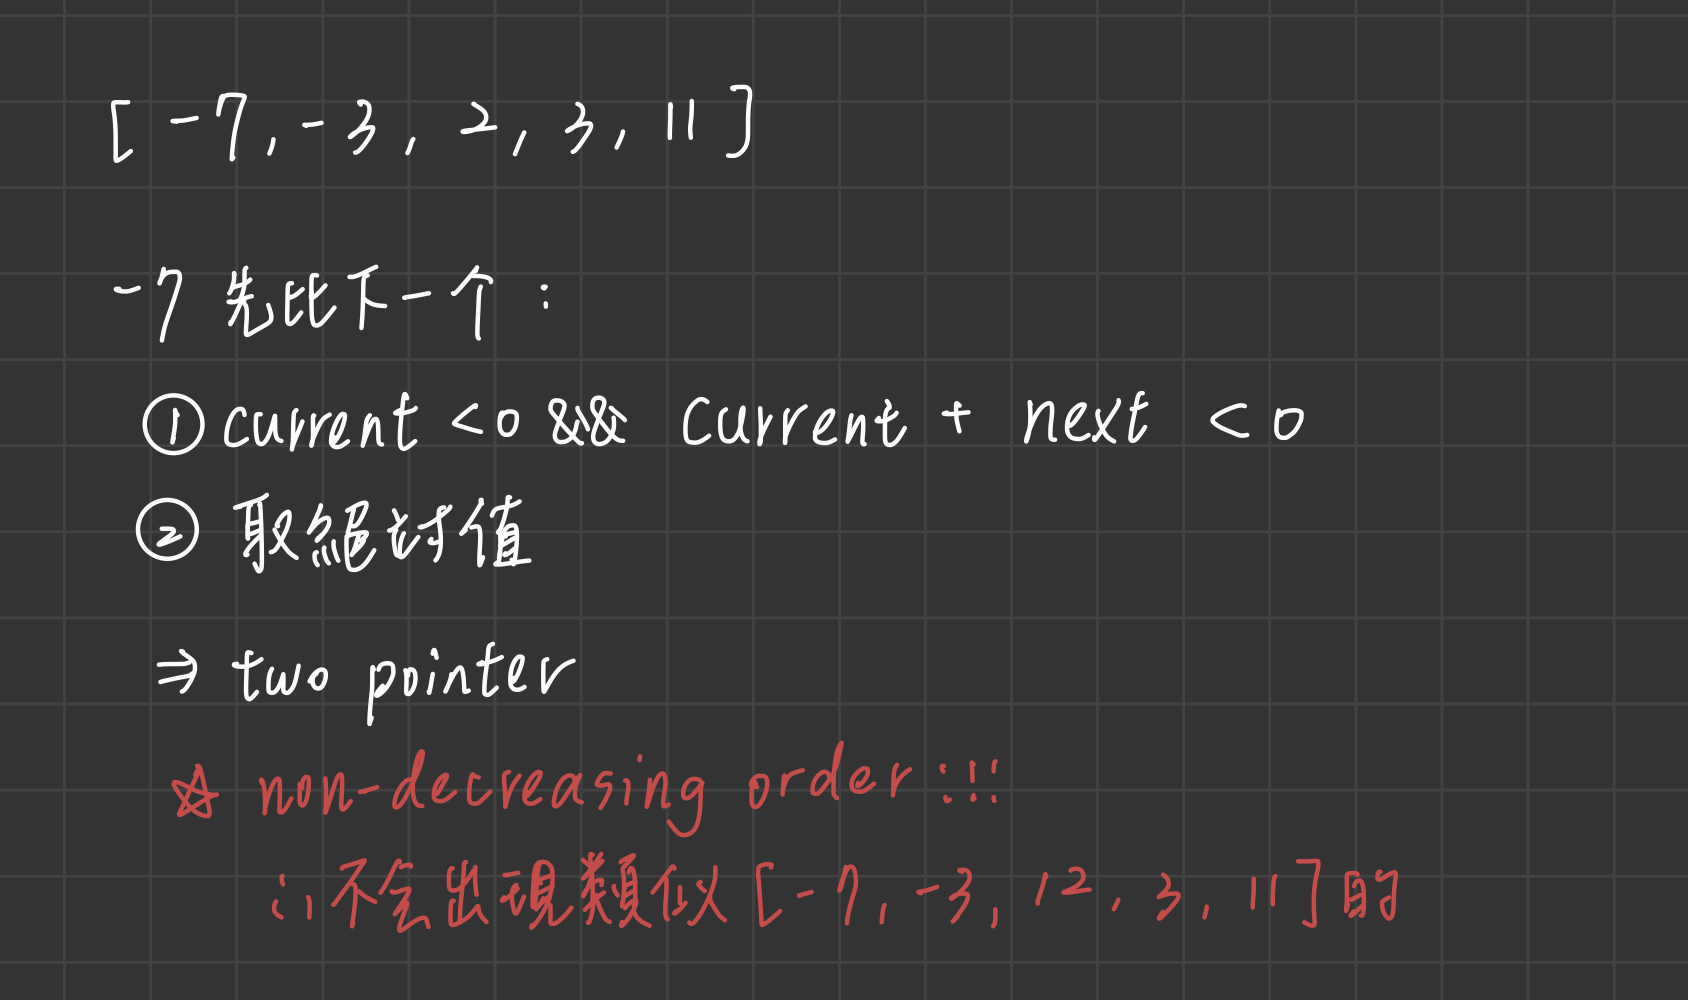 [ -7, -3, 2, 3, 11 ]
-7 先比下一个 :
① current < 0 && Current + next < 0
② 取絕対値
⇒ two pointer
☆ non-decreasing order !!!
∴ 不会出現類似 [ -7, -3, 12, 3, 11 ] 的